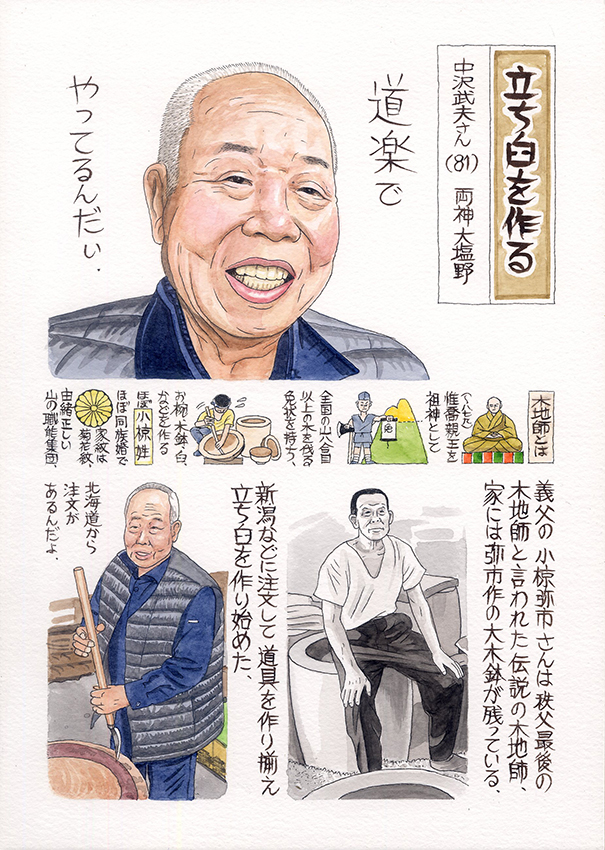 立ち臼を作る
中沢武夫さん（81） 両神大塩野
道楽で
やってるんだぃ．
木地師とは
惟喬親王を
祖神として
全国の山八合目
以上の木を伐る
免状を持ち、
お椀、木鉢、臼、
かなどを作る
ほぼ小椋姓
ほぼ同族婚で
家紋は
菊花紋、
由緒正しい
山の職能集団、
義父の小椋弥市さんは秩父最後の
木地師と言われた伝説の木地師、
家には弥市作の大木鉢が残っている、
新潟などに注文して道具を作り揃え
立ち臼を作り始めた、
北海道から
注文が
あるんだよ、